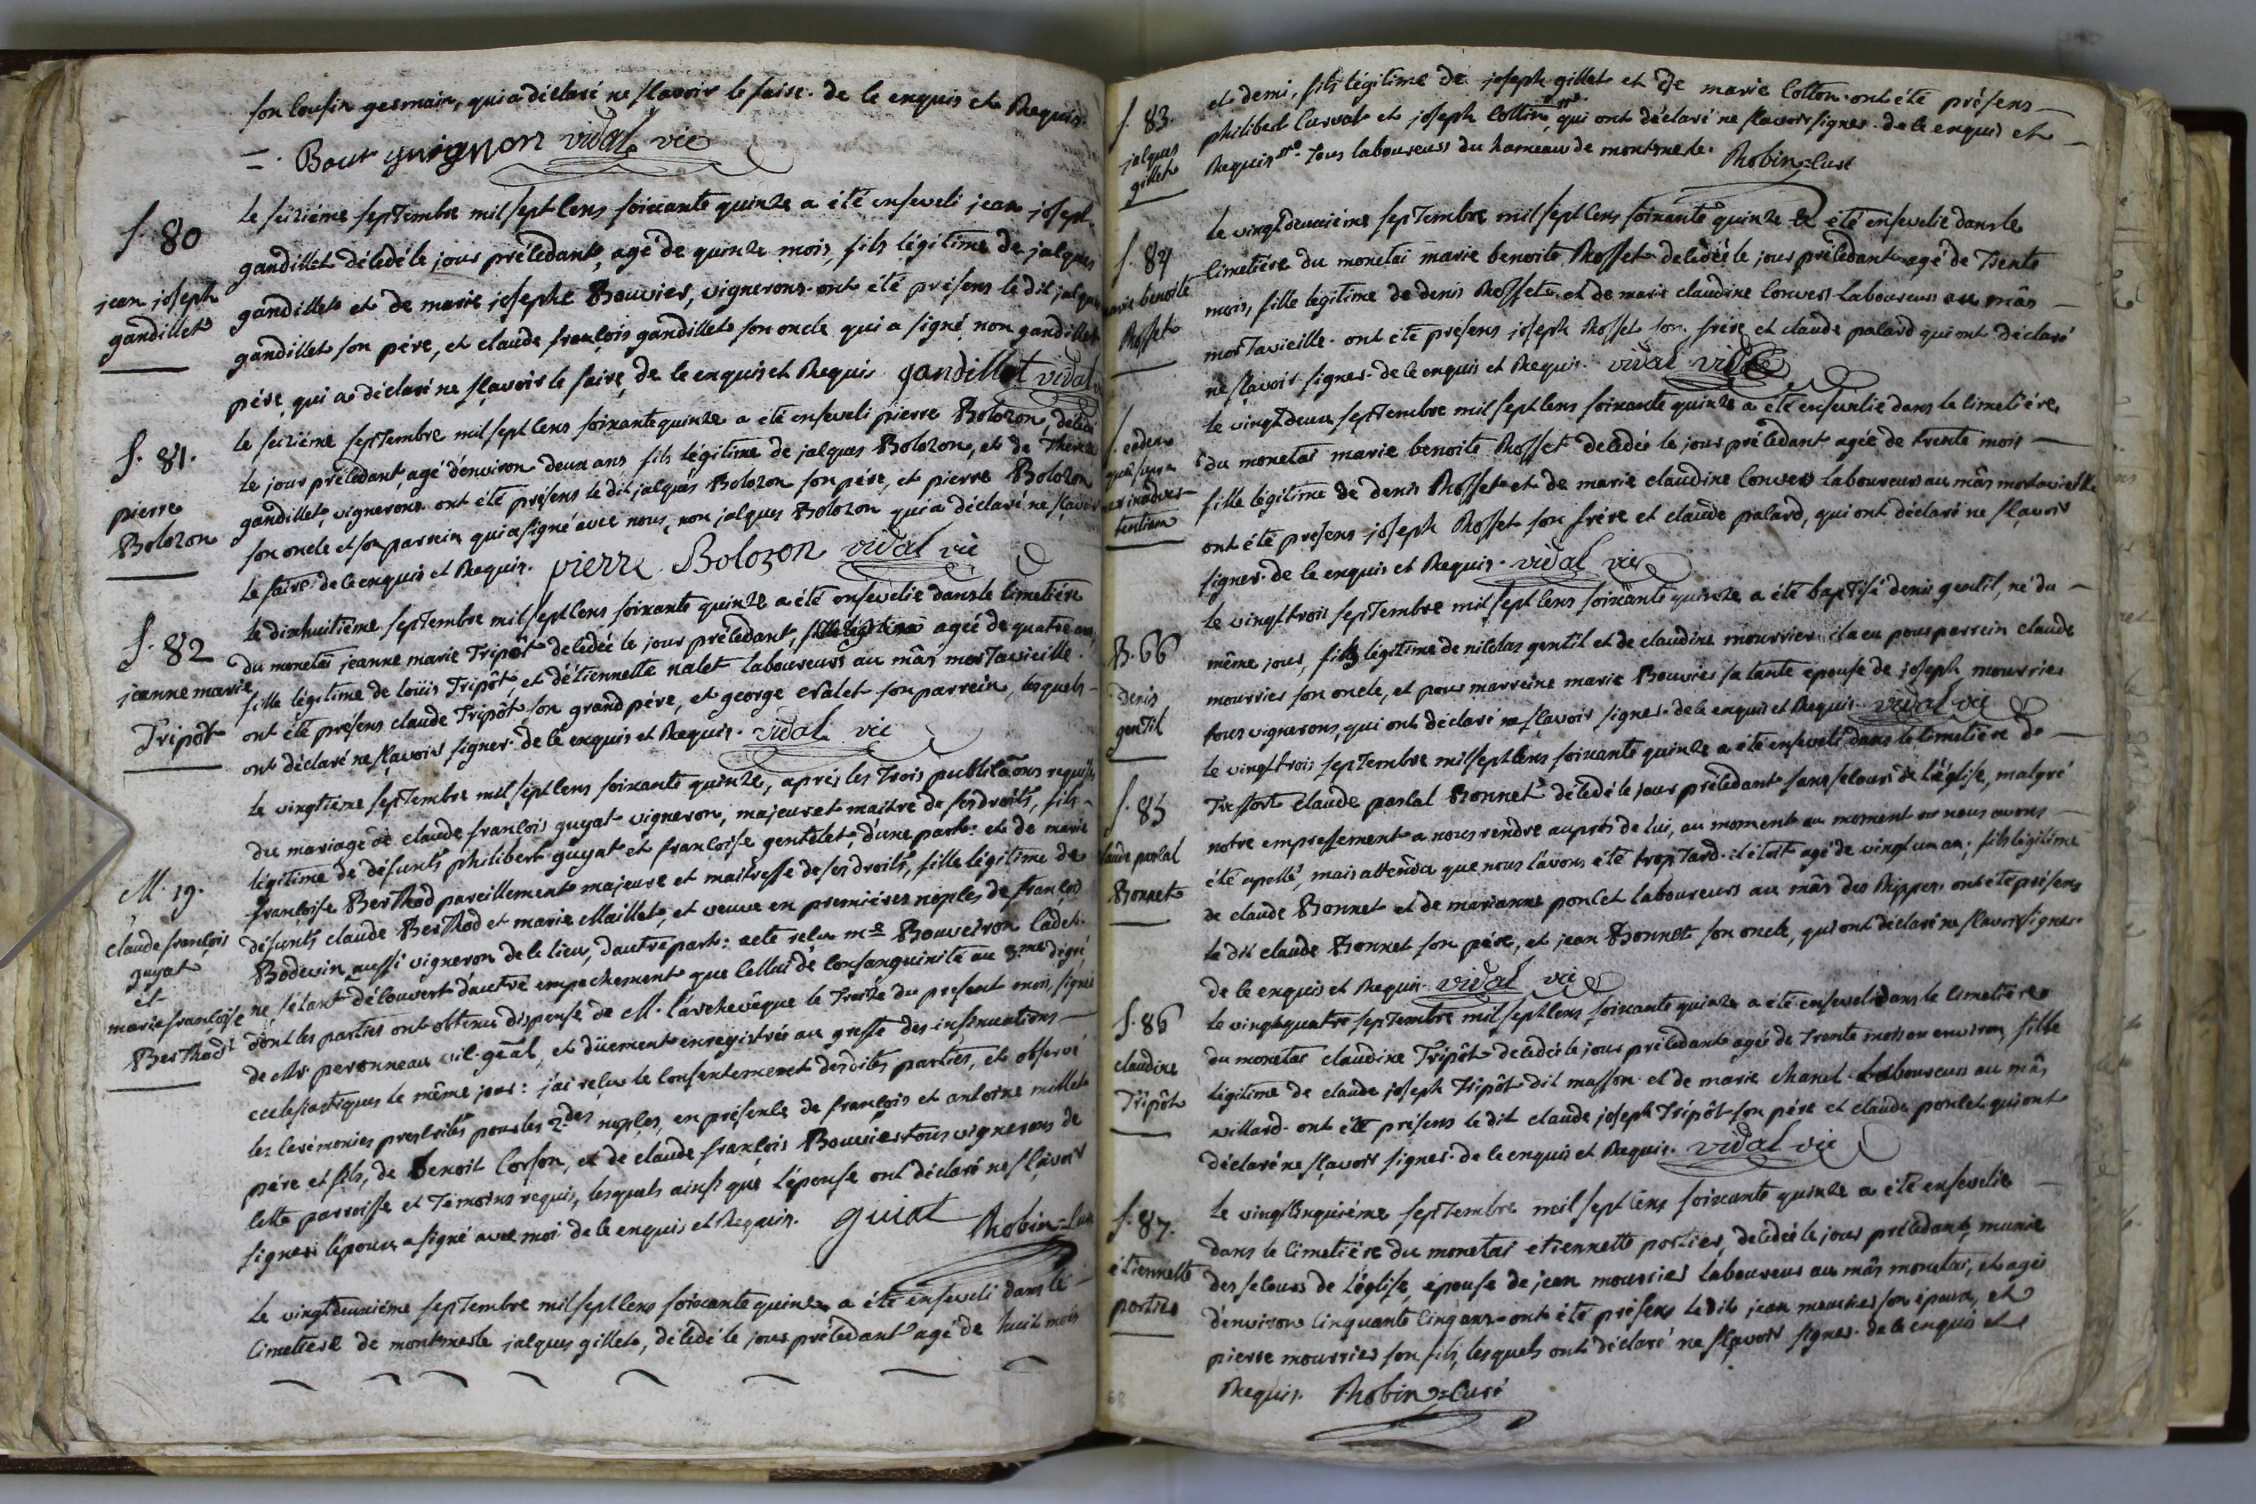 son cousin germain, qui a déclaré ne sçavoir le faire. de ce enquis et Requis.
=. Bout guignon vidal vic
S. 80
jean joseph
gandillet
le seizième septembre mil sept cens soixante quinze a été enseveli jean joseph
gandillet décédé le jour précédant, agé de quinze mois, fils légitime de jacques
gandillet et de marie josephe Bouvier, vignerons. ont été présens le dit jacques
gandillet son père, et claude françois gandillet son oncle qui a signé non gandillet
père, qui a déclaré ne sçavoir le faire, de ce enquis et Requis gandillet vidal
S. 81.
pierre
Bolozon
le seizième septembre mil sept cens soixante quinze a été enseveli pierre Bolozon, décédé
le jour précédant, agé d'environ deux ans fils légitime de jacques Bolozon, et de Therese
gandillet, vignerons. ont été présens le dit jacques Bolozon son père, et pierre Bolozon
son oncle et son parrein qui a signé avec nous, non jacques Bolozon qui a déclaré ne sçavoir
le faire. de ce enquis et Requis. pierre Bolozon vidal vic
S. 82
jeanne marie
Tripôt
le dixhuitième septembre mil sept cens soixante quinze a été ensevelie dans le cimetière
du monetai jeanne marie Tripôt décédée le jour précédant, agée de quatre ans,
fille légitime de loüis Tripôt, et d'étiennette nalet laboureurs au mâs mortavieille.
ont été présens claude Tripôt son grand père, et george crâlet son parrein, lesquels
ont déclaré ne sçavoir signer. de ce enquis et Requis. vidal vic
M. 19.
claude françois
guyat
et
marie françoise
Berthod
le vingtième septembre mil sept cens soixante quinze, après les trois publicãons requises
du mariage de claude françois guyat vigneron, majeur et maitre de ses droits, fils
légitime de défunts philibert guyat et françoise gentelet, d'une part: et de marie
françoise Berthod pareillement majeure et maitresse de ses droits, fille légitime de
défunts claude Berthod et marie Maillet, et veuve en premières nopces de françois
Bodevin aussi vigneron de ce lieu, d'autre part: acte reçu me Bouveiron cadet.
ne s'étant découvert d'autre empechement que celluí de consanguinité au 3.me dégré
dont les parties ont obtenu dispense de M. l'archevêque le treize du present mois, signé
de Mr. peronneau vic. gñal, et düement enregistrée au greffe des insinuations
ecclésiastiques le même jour: j'ai reçu le consentement desdites parties, et observé
les cerémonies prescrites pour les 2.des nopces, en présence de françois et antoine millet
père et fils, de Benoit Corson, et de claude françois Bouvier tous vignerons de
cette parroisse et témoins requis, lesquels ainsi que l'épouse ont déclaré ne sçavoir
signer: l'époux a signé avec moi de ce enquis et Requis. guiat Robin = Curé
le vingtdeuxième septembre mil sept cens soixante quinze a été enseveli dans le
cimetière de montmerle jacques gillet, décédé le jour précédant agé de huit mois
S. 83
jacques
gillet
et demi, fils légitime de joseph gillet et de marie Cotton. ont été présens
philibert Curvat et joseph Cottin, qui ont déclaré ne sçavoir signer. de ce enquis et
Requis. tous laboureurs du hameau de montmerle. Robin = Curé
S. 84
marie benoite
Rosset
le vingtdeuxième septembre mil sept cens soixante quinze a été ensevelie dans le
cimetière du monetai marie benoite Rosset décédée le jour précédant agé de trente
mois, fille légitime de denis Rosset et de marie claudine Convers laboureurs au mâs
mortavieille. ont été présens joseph Rosset son frère et claude palard qui ont déclaré
ne sçavoir signer. de ce enquis et Requis. vidal vic
S. eadem
quæ supra
per inadver-
tentiam
le vingtdeux septembre mil sept cens soixante quinze a été ensevelie dans le cimetière
du monetai marie benoite Rosset décédée le jour précédant agée de trente mois
fille légitime de denis Rosset et de marie claudine Convers laboureurs au mâs mortavieille
ont été présens joseph Rosset son frère et claude palard, qui ont déclaré ne sçavoir
signer. de ce enquis et Requis. vidal vic
B. 66
Denis
gentil
le vingttrois septembre mil sept cens soixante quinze a été baptisé denis gentil, né du
même jour, fils légitime de nicolas gentil et de claudine mourrier. il a eu pour parrein claude
mourrier son oncle, et pour marreine marie Bouvier sa tante épouse de joseph mourrier
tous vignerons, qui ont déclaré ne sçavoir signer. de ce enquis et Requis. vidal vic
S. 85
claude pascal
Bonnet
le vingttrois septembre mil sept cens soixante quinze a été enseveli dans le cimetière de
Tressort claude pascal Bonnet décédé le jour précédant sans secours de l'église, malgré
notre empressement a nous rendre auprès de lui, au moment au moment ou nous avons
été apellé, mais attendu que nous l'avons été trop tard. il étoit agé de vingt un an, fils légitime
de claude Bonnet et de marianne poncet laboureurs au mâs des Rippes. ont été présens
le dit claude Bonnet son père, et jean Bonnet son oncle, qui ont déclaré ne sçavoir signer.
de ce enquis et Requis. vidal vic
S. 86
claudine
Tripôt
le vingtquatre septembre mil sept cens soixante quinze a été ensevelie dans le cimetière
du monetai claudine Tripôt décédée le jour précédant agée de trente mois ou environ, fille
légitime de claude joseph Tripôt dit masson et de marie chanel laboureurs au mâs
willard. ont été présens le dit claude joseph Tripôt son père et claude poncet qui ont
déclaré ne sçavoir signer. de ce enquis et Requis. vidal vic
S. 87.
étiennette
portier
le vingtcinquième septembre mil sept cens soixante quinze a été ensevelie
dans le cimetière du monetai etiennette portier, décédée le jour précédant, munie
des secours de l'église, épouse de jean mourrier laboureur au mâs monetai, et agée
d'environ cinquante cinq ans. ont été présens ledit jean mourrier son époux, et
pierre mourrier son fils, lesquels ont déclaré ne sçavoir signer. de ce enquis et
Requis. Robin = Curé